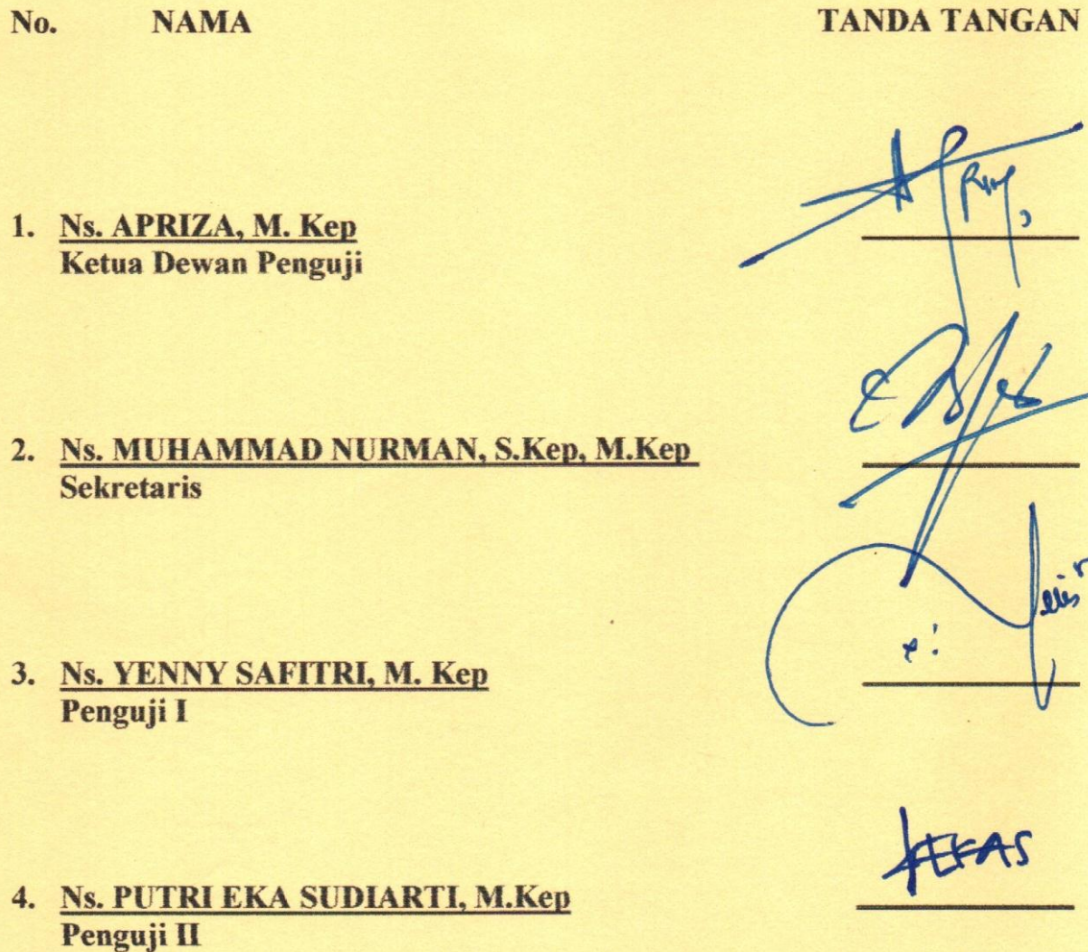 No. NAMA TANDA TANGAN
1. Ns. APRIZA, M. Kep
Ketua Dewan Penguji
2. Ns. MUHAMMAD NURMAN, S.Kep, M.Kep
Sekretaris
3. Ns. YENNY SAFITRI, M. Kep
Penguji I
4. Ns. PUTRI EKA SUDIARTI, M.Kep
Penguji II